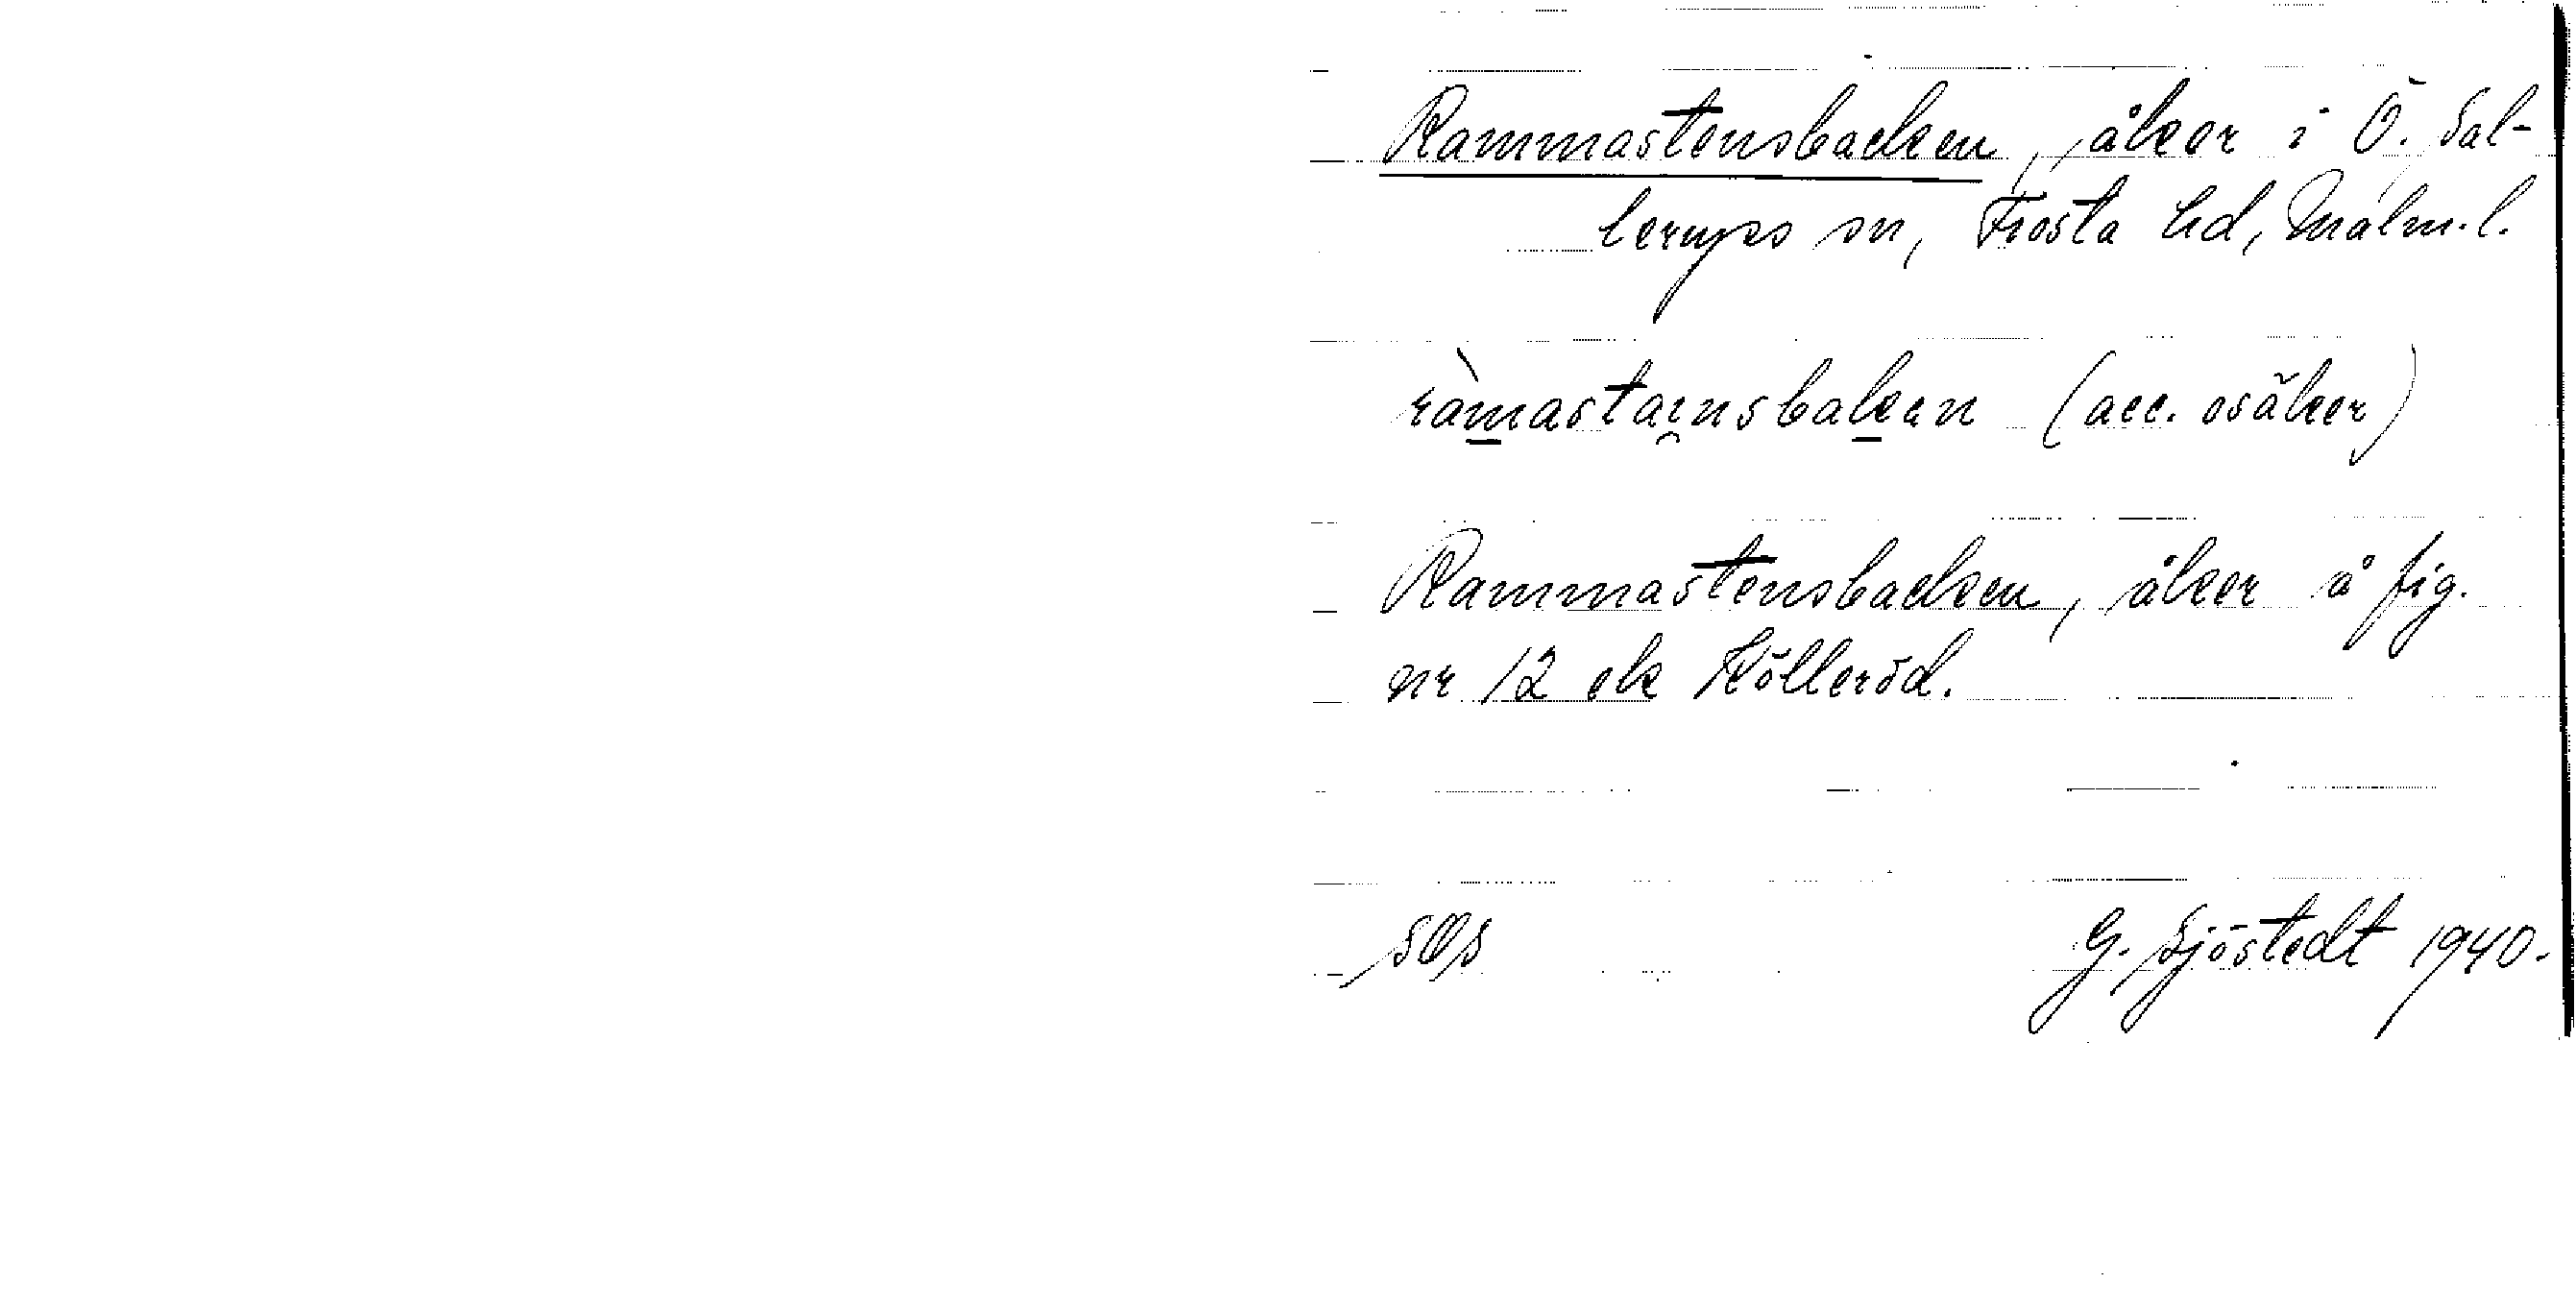 Rammastensbacken, åker i Ö. Sal-
lerups sn, Frosta hd, Malm. l.
ràmastai̯nsbakɐn (acc. osäker)
Rammastensbacken, åker å fig.
nr 12 ek Kölleröd.
SOS G. Sjöstedt 1940.